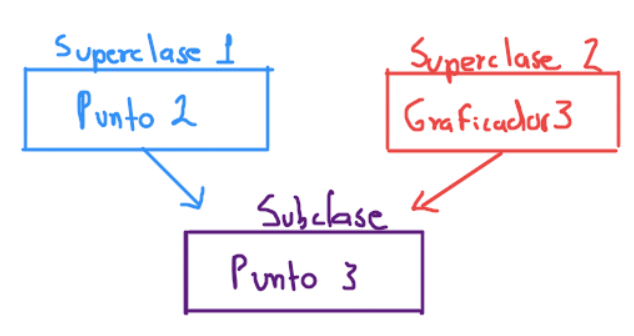 Superclase 1
Punto 2
Superclase 2
Graficador3
Subclase
Punto 3